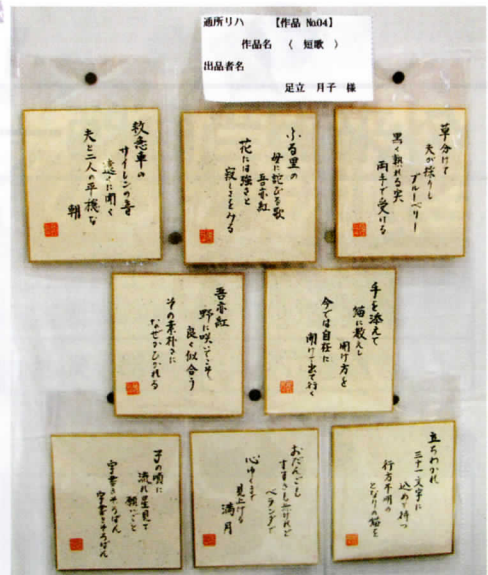 通所リハ 【作品 №04】
作品名 〈 短歌 〉
出品者名
足立 月子 様
草分けて
夫が採りし
ブルーベリー
黒く熟れる実
両手で受ける
ふる里の
母に詫びる歌
吾亦紅
花には強さと
寂しさをみる
救急車の
サイレンの音
遠くに聞く
夫と二人の平穏な
朝
手を添えて
猫に教えし
開け方を
今では自在に
開けて出て行く
吾亦紅
野に咲いてこそ
良く似合う
その素朴さに
なぜかひかれる
立ちわかれ
三十一文字に
込めて待つ
行方不明の
となりの猫を
おだんごも
すすきも無けれど
ベランダで
心ゆくまで
見上げる
満月
子の頃に
流れ星見て
願いごと
字書きそろばん
字書きそろばん